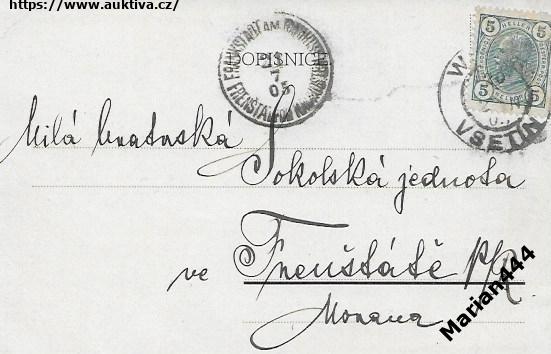 https://www.auktiva.cz/
FRANKSTADT AM RADHOST
FRENŠTÁT POD RADHOŠTĚM
7
05
DOPISNICE
5 HELLER 5
VSETÍN
Milá bratrská
Sokolská jednota
ve Frenštátě p/R
Morava
Marian444